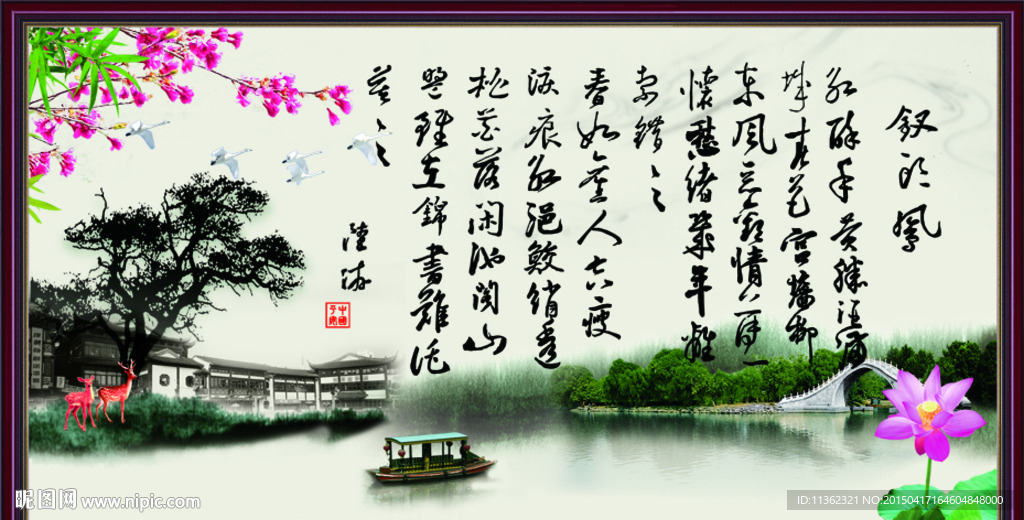 釵头鳳
红酥手黄縢酒满
城春色宫墙柳
东风恶欢情薄一
懷愁緒幾年離
索錯々
春如舊人空瘦
淚痕红浥鮫綃透
桃花落闲池阁山
盟雖在錦書難託
莫々
陸游
昵图网 www.nipic.com
ID:11362321 NO:20150417164604848000